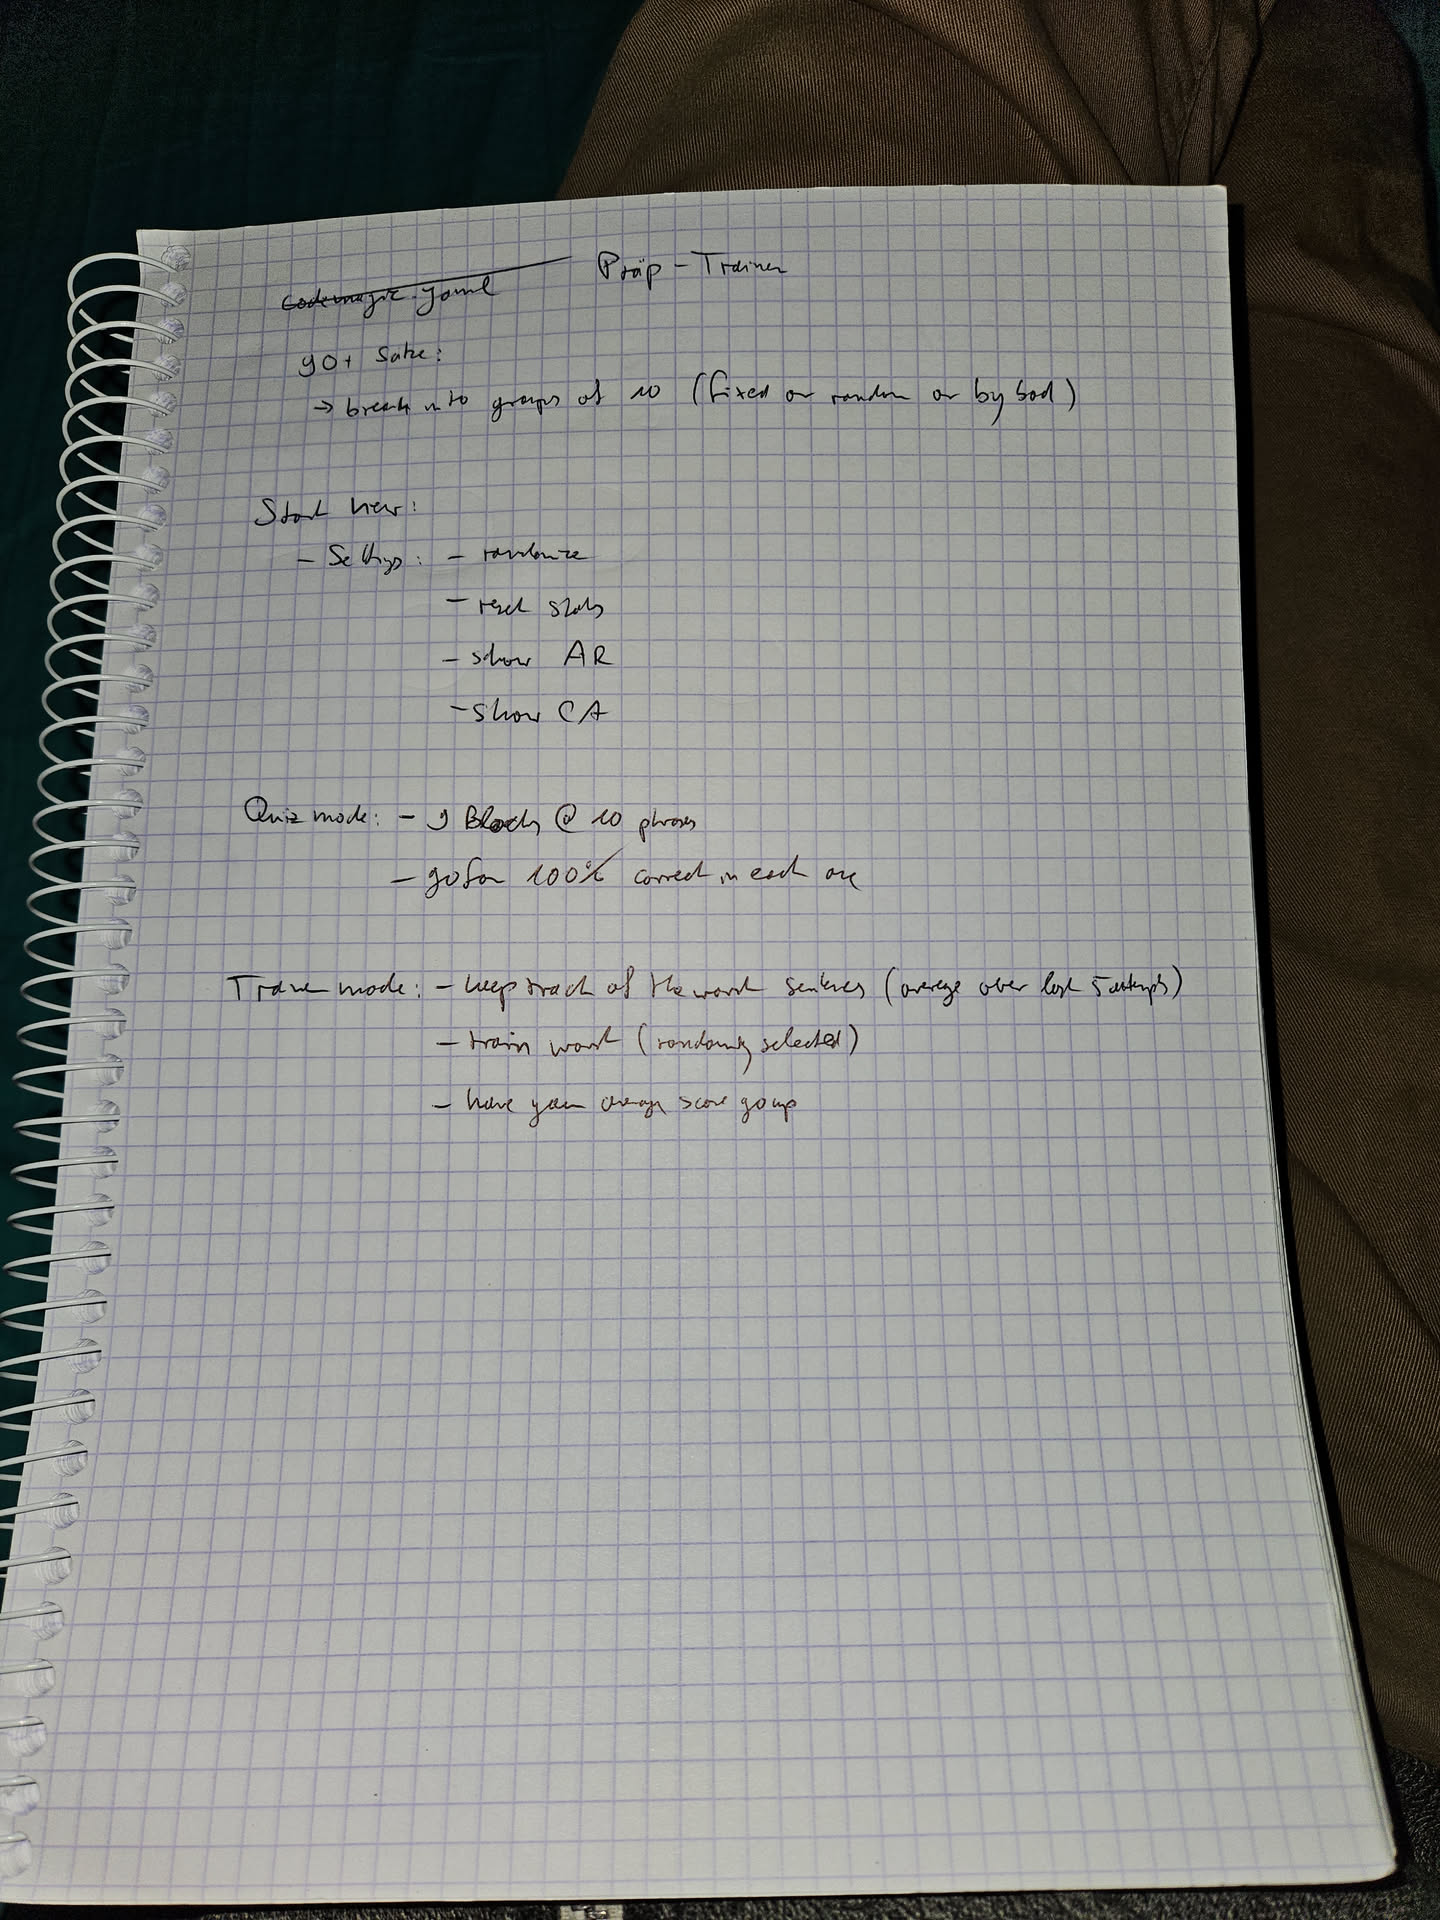 Präp-Trainer
codemagic.yaml
90+ Sätze:
→ break into groups of 10 (fixed or random or by bad)
Start view:
- Settings: - randomize
- reset stats
- show AR
- show CA
Quiz mode: - 9 Blocks @ 10 phrases
- go for 100% correct in each one
Train mode: - keep track of the worst sentences (average over last 5 attempts)
- train worst (randomly selected)
- have your average score go up